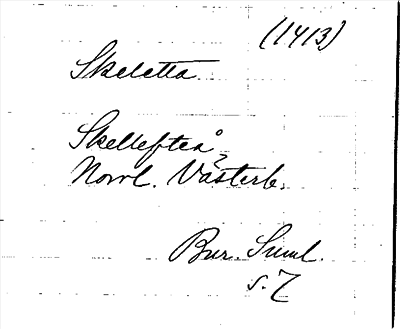 (1413)
Skeletta
Skellefteå,
Norrl. Västerb.
Bur. Suml.
s. 7